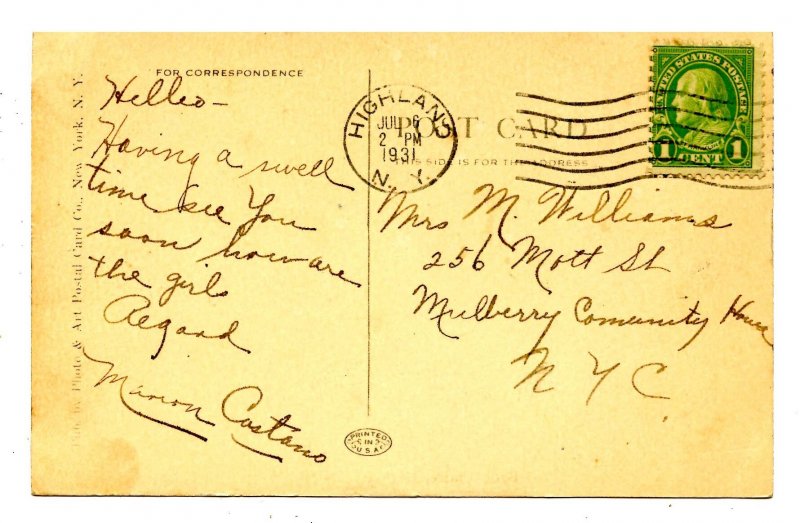 FOR CORRESPONDENCE
Helleo-
Having a swell
time see You
soon how are
the girls
Regard
Marion Costano
Pub. by Photo & Art Postal Card Co., New York, N. Y.
HIGHLAND
JUL 6
2 PM
1931
N. Y.
POST CARD
THIS SIDE IS FOR THE ADDRESS
UNITED STATES POSTAGE
1 CENT 1
Mrs M. Williams
256 Mott St
Mulberry Comunity House
N Y C
PRINTED
IN
U.S.A.